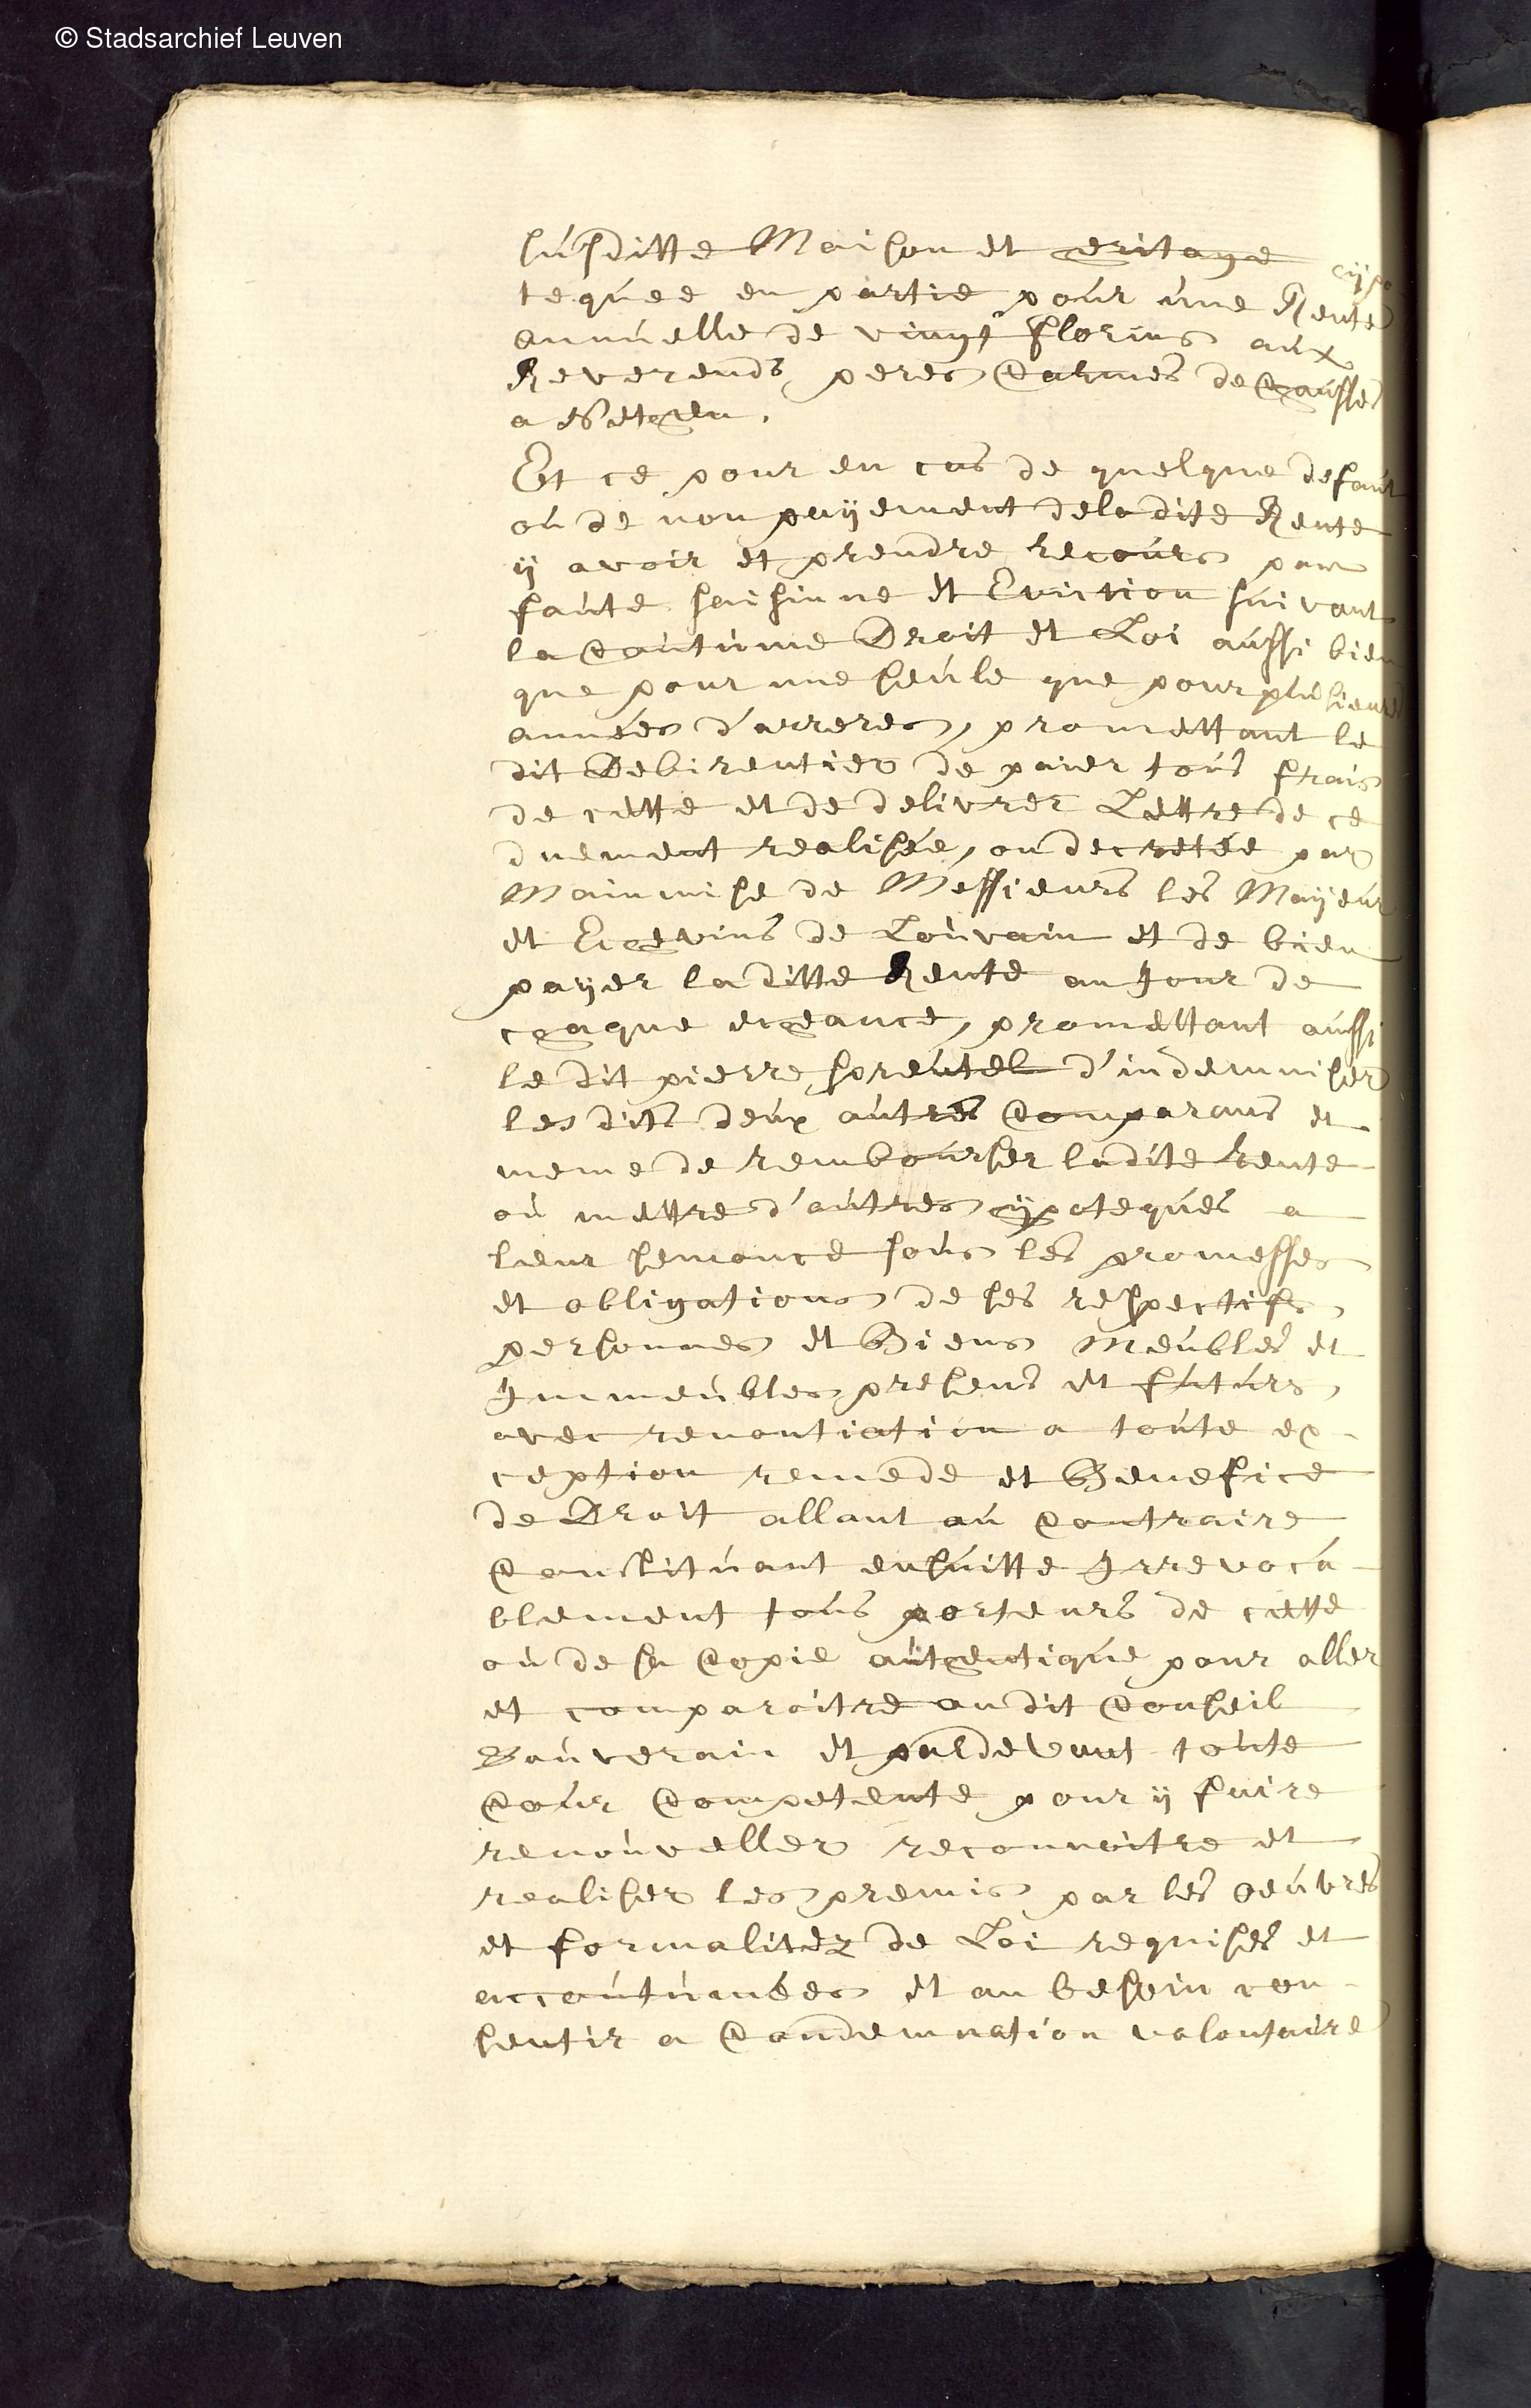 © Stadsarchief Leuven
susditte Maison et heritage hijpo
tequee en partie pour une Rente
annuelle de vingt florins aux
Reverends peres Carmes dechausses
a
Et ce pour en cas de quelque defaut
ou de non payement dela dite Rente
ij avoir et prendre recours par
faute saisinne et Eviction suivant
la Coutume Droit et Loi aussi bien
que pour une seule que pour plusieurs
années d'arreres, promettant le
dit Debirentier de paier tous frais
de cette et de delivrer Lettre de ce
duement realisée, ou decretée par
Mainmise de Messieurs les Maijeur
et Echevins de Louvain et de bien
paijer la ditte Rente au Jour de
chaque echeance, promettant aussi
le dit pierre d'indemniser
les dits deux autres Comparans et
meme de rembourser ladite Rente
ou mettre d'autres hijpoteques a
leur semonce sous les promesses
et obligations de ses respectifs
personnes et Biens Meubles et
Immeubles presens et futurs
avec renontiation a toute ex-
ception remede et Benefice
de Droit allant au Contraire
Constituant ensuitte Irrevoca-
blement tous porteurs de cette
ou de sa Copie autentique pour aller
et comparoitre au dit Conseil
Souverain et paldevant toute
Cour Competente pour ij faire
renouveller reconnoitre et
realiser les premis par les oeuvres
et formalitez de Loi requises et
accoutumées et au besoin con-
sentir a Condemnation volontaire